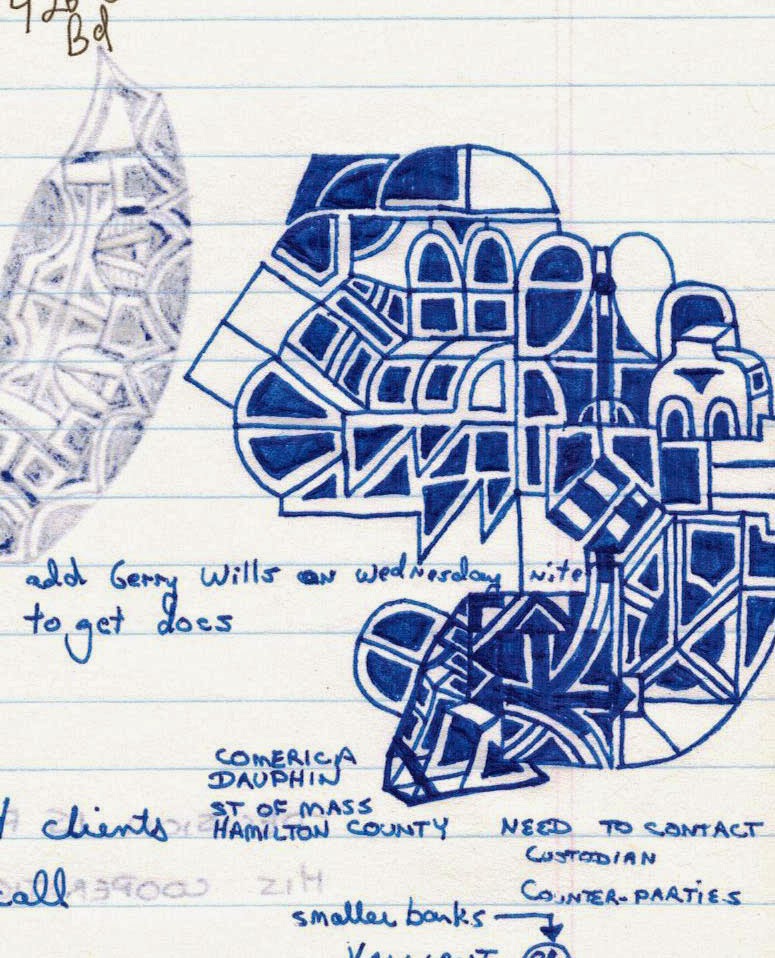 Bd
add Gerry Wills on Wednesday nite
to get docs
COMERICA
DAUPHIN
ST OF MASS
HAMILTON COUNTY
clients
call
NEED TO CONTACT
CUSTODIAN
COUNTER-PARTIES
smaller banks